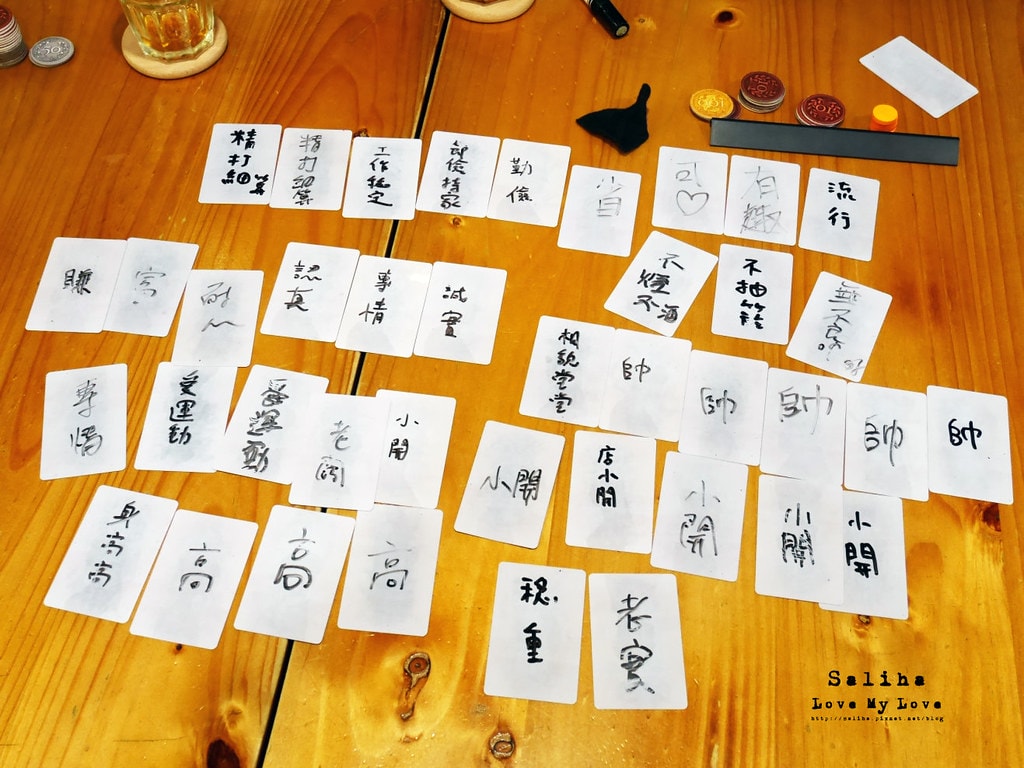 精打細算
精打細算
工作穩定
節儉持家
勤儉
省
可♡
有趣
流行
賺
富
耐心
認真
專情
誠實
不煙不酒
不抽菸
相貌堂堂
帥
帥
帥
帥
帥
專情
愛運動
愛運動
老闆
小開
小開
店小開
小開
小開
小開
身高高
高
高
高
穩重
老實
Saliha
Love My Love
http://saliha.pixnet.net/blog